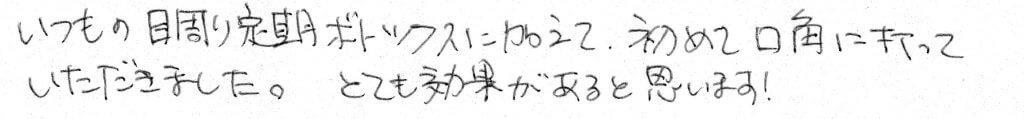 いつもの目周り定期ボトックスに加えて、初めて口角に打って
いただきました。 とても効果があると思います!